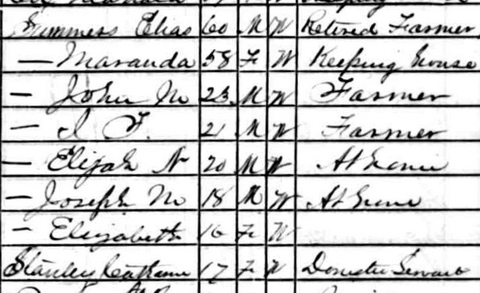 Summers Elias 60 M W Retired Farmer
— Maranda 58 F W Keeping house
— John M 23 M W Farmer
— I F. 21 M W Farmer
— Elijah N 20 M W At home
— Joseph M 18 M W At home
— Elizabeth 16 F W
Stanley Catharine 17 F W Domestic Servant